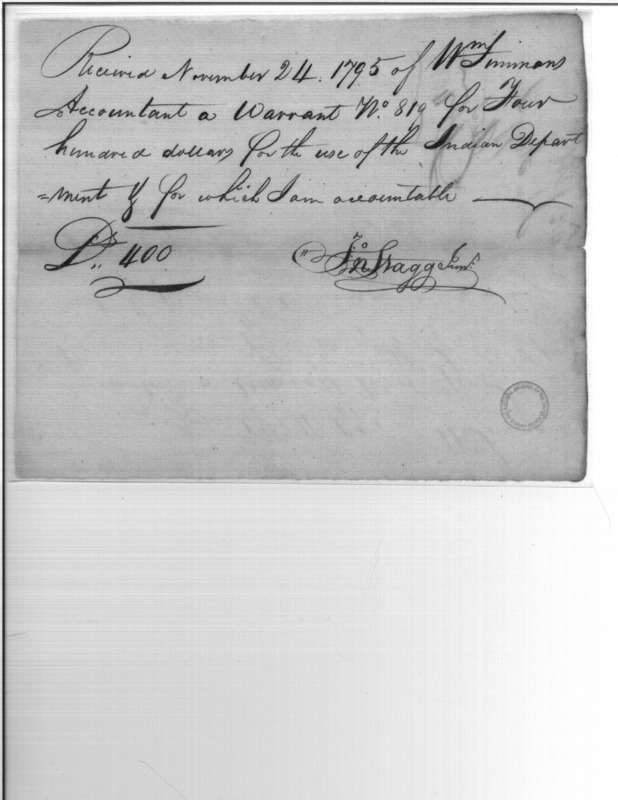 Received November 24. 1795 of Wm Simmons
Accountant a Warrant No. 819 for Four
hundred dollars for the use of the Indian Depart
=ment & for which I am accountable
Drs. 400
Jno Stagg Junr.